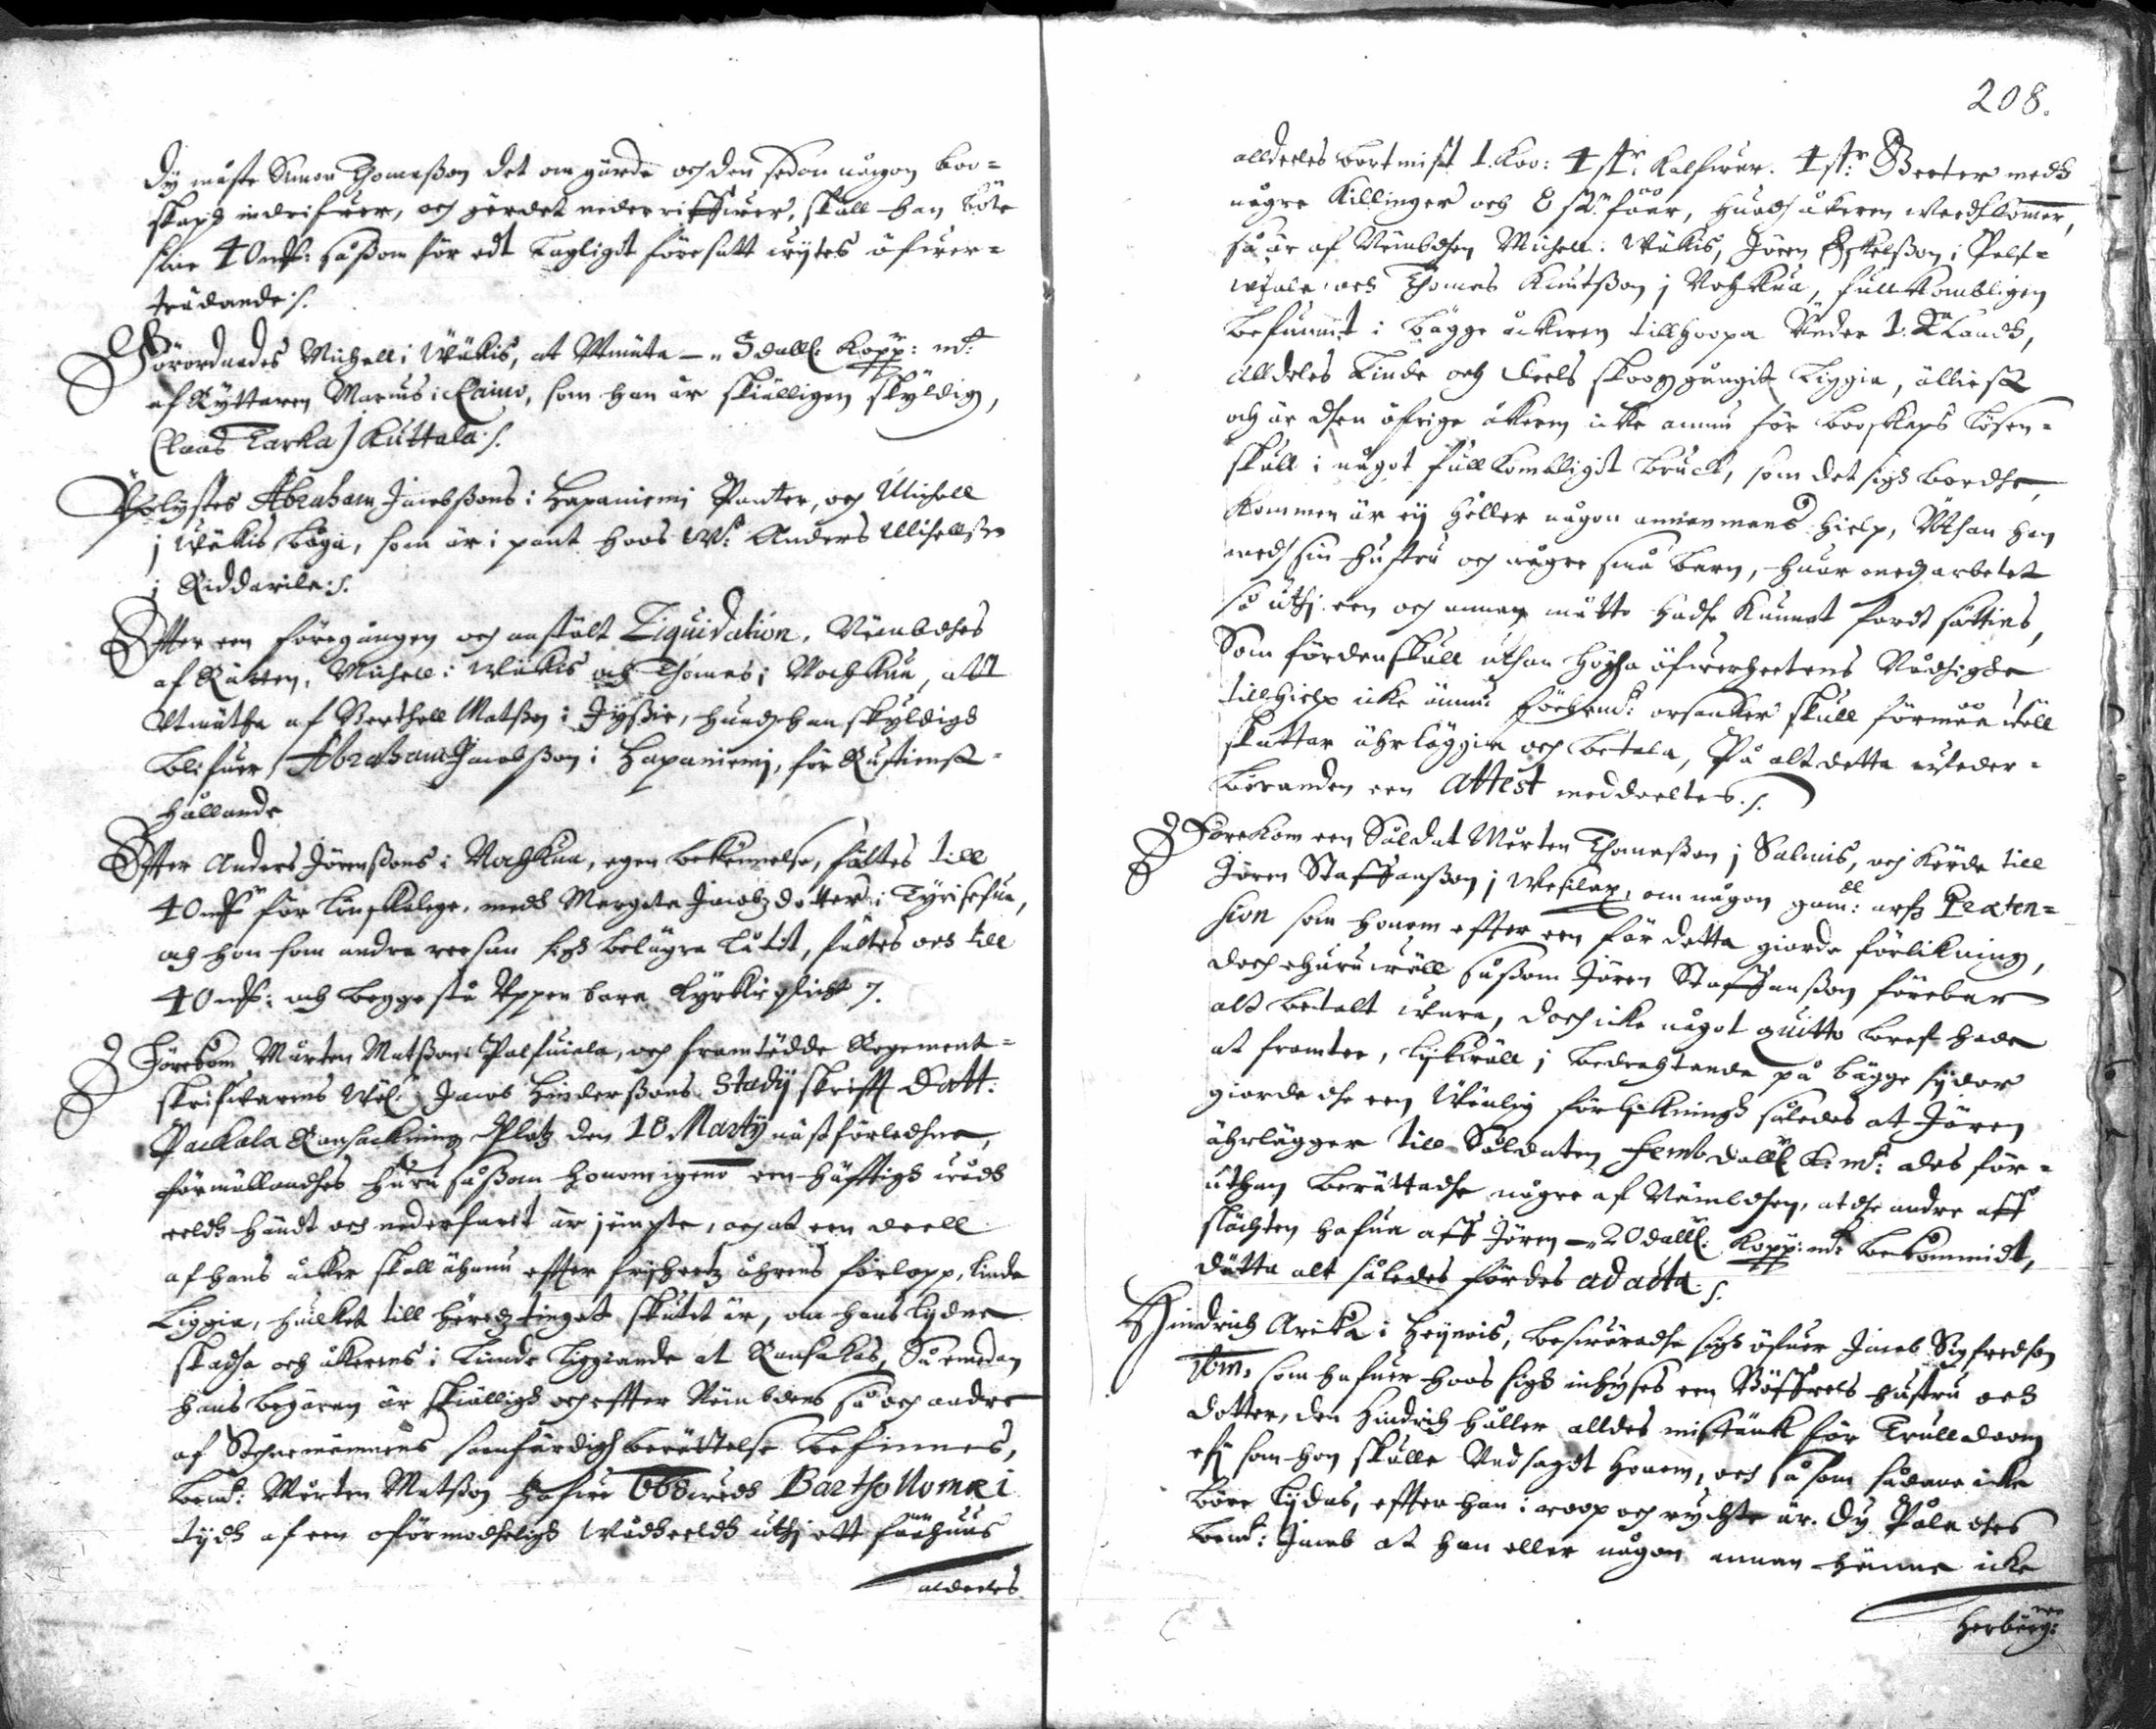 Dy måste Simon Thomasson det om gärde och den sedan någon boo=
skaps indrifwer, och gerdet nederriffwer, skall han böte
sine 40 mk: såssom för edt lagligit föresatt wijtes öfwer=
trädande :/.
Förordnades Michell i Wäkis, at Vtmäta — 3 dall: Kopp: mt
af Ryttaren Marcus i Laino, som han är skiälligen skyldig,
Claas Larka j Kuttala :/.
Vplystes Abraham Jacobssons i Hapaniemi Panter, och Michell
j Wäkis boga, som är i pant hoos W: Anders Michellss:
j Riddarila :/.
Effter een föregången och anstält Liquidation, Nämbdhes
af Rätten, Michell i Wäkis och Thomas i Nochkua, att
Vtmätha af Berthell Matsson i Jyssie, huadh han skyldigh
blifuer Abraham Jacobsson i Hapaniemj, för Rustienst=
hållande
Effter Anders Jörenssons i Nochkua, egen bekennelse, fältes till
40 mk för Lönskelege, medh Margeta Jacobz dotter i Tyrisefua,
och hon som andra reesan sigh belägra låtit, fältes och till
40 mk: och begge stå Vppenbara Kyrkie plicht /.
Förekom Mårten Matsson i Palfuiala, och framtedde Regement=
skrifwarens Wäl: Jacob Hinderssons Stadij skrifft Datt:
Packala Ransackning Platz den 18 Martij näst förledhne,
förmällandhes huru såssom honom igenom een häfftigh wådh
eeldh händt och nederfarit är jempte, och at een deell
af hans åcker skall ähnnu effter frijheetz åhrens förlopp, linda
Liggia, huilket till häredz tinget skutit är, om hans lydna
skadha och åkerens i Linde liggiande at Ransakas, Såemedan
hans begären är skiälligh och effter Nämbdens så och andre
af Sochnemännens sanfärdigh berättelse befinnes,
bemt: Mårten Matsson hafwe Bartholomæi
tijdh af een oförmodheligh wådheeldh uthj ett fäähuus
aldeeles
208.
alldeeles bortmist 1. Koo: 4 st: Kalfwar. 4 st: Geeter medh
någre Killinger och 8 st: fåår, huadh åkeren wedhkommer,
så är af Nämbdhen Michell i Wäkis, Jören Eskelsson i Palf=
wiala och Thomas Knutsson j Nochkua, fullkombligen
befunnit i bägge åckrer tillhoopa Under 1. T: Landh,
alldeles Linde och deels skoogzgångit Liggia, ällies
och är dhen öfrige åkeren icke annu för booskaps lösen=
skull i något fullkombligit bruck, som det sigh bordhe,
Kommen är ey heller någon annanmans hielp, Vthan han
medh sin hustru och någre små barn, huar medh arbetet
så uthj een och annan måtte hadhe kunnat fordt sättias,
Som fördenskull uthan högha öfwerheetens Nådhighe
tillhielp icke ännu förbemt: orsaker skull förmåå wäll
skatter ährläggia och betala, På alt detta wederbörandes
een Attest meddeeltes :/.
Förekom een Soldat Mårten Thomasson j Salmis, och kärde till
Jören Staffansson j Wesilax, om någon gam: arfs Præten=
sion som honom effter een för detta giorde förlikning,
doch ehuruwäll såssom Jören Staffansson förebar
alt betalt wara, doch icke något quitto breef hade
at framtee, lijkwäll j bedrachtande på bägge sydor
giorde dhe een Wänlig förlijkningh således at Jören
ährlägger till Soldaten Femb dall: K. mt: des för=
uthan berättadhe någre af Nämbdhen, at dhe andre aff
slächten hafua aff Jören — 20 dall: Kopp: mt bekommidt,
dätta alt således fördes ad acta :/.
Hindrich Arika i Heijnois, beswäradhe sigh öfuer Jacob Sigfredson
ibm, som hafuer hoos sigh inhyses een hustru och
dotter, den Hindrich håller alldes mistänk för Trulldoom
efj som hon skulle Undsagdt honom, och såsom sådane icke
böre lijdas, effter han i roop och rychte är. Dy Påladhes
bemt: Jacob at han eller någon annan henne icke
herbärg: